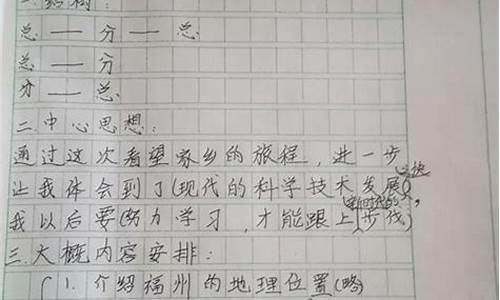 一.结构:
总——分——总.
总——分
分——总.
二.中心思想:
通过这次看望家乡的旅程,进一步
让我体会到了(现代的科学技术发展之快,
我以后要(努力学习,才能跟上新时代的步伐)
三.大概内容安排:
(1.介绍福州的地理位置(略)